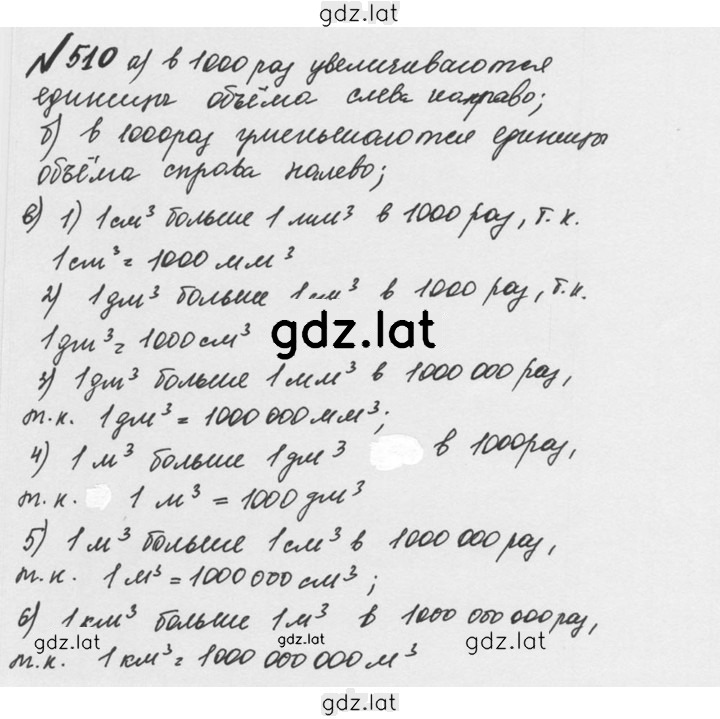 gdz.lat
№510 а) в 1000 раз увеличиваются
единицы объёма слева направо;
б) в 1000раз уменьшаются единицы
объёма справа налево;
в) 1) 1 см³ больше 1 мм³ в 1000 раз, т. к.
1 см³ = 1000 мм³
2) 1 дм³ больше 1 см³ в 1000 раз, т.к.
1 дм³ = 1000 см³
gdz.lat
3) 1 дм³ больше 1 мм³ в 1000 000 раз,
т.к. 1 дм³ = 1000 000 мм³;
4) 1 м³ больше 1 дм³ в 1000раз,
т.к. 1 м³ = 1000 дм³
5) 1 м³ больше 1 см³ в 1000 000 раз,
т.к. 1 м³ = 1000 000 см³;
6) 1 км³ больше 1 м³ в 1000 000 000 раз,
gdz.lat gdz.lat gdz.lat
т.к. 1 км³ = 1000 000 000 м³
gdz.lat